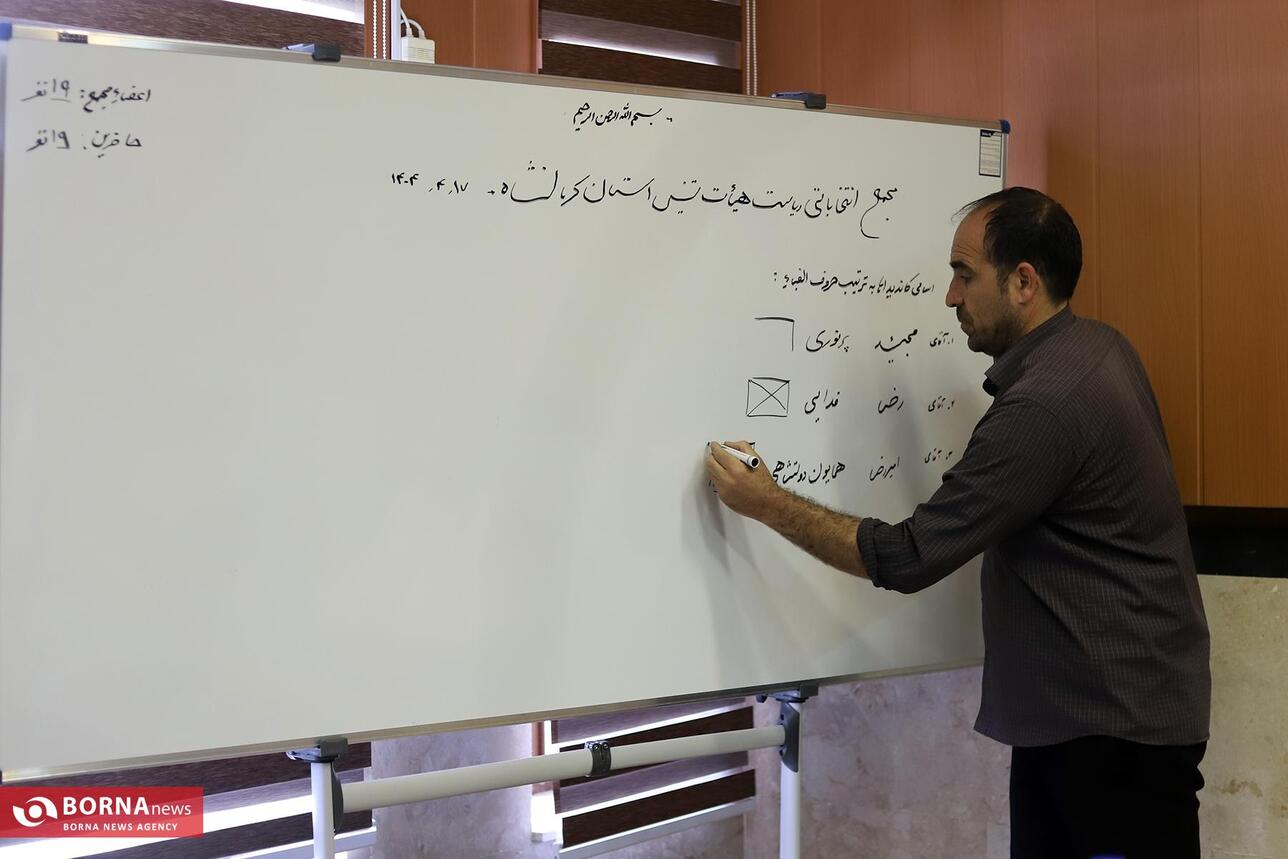 بسم الله الرحمن الرحیم
اعضاء مجمع: ۱۹ نفر
حاضرین: ۱۹ نفر
مجمع انتخاباتی ریاست هیأت تنیس استان کرمانشاه - ۱۴۰۴٫۴٫۱۷
اسامی کاندیداتا به ترتیب حروف الفباء:
۱. آقای مجید پرنوری
۲. آقای رضا فدایی
۳. آقای امیررضا همایون دولتشاهی
BORNA news
BORNA NEWS AGENCY